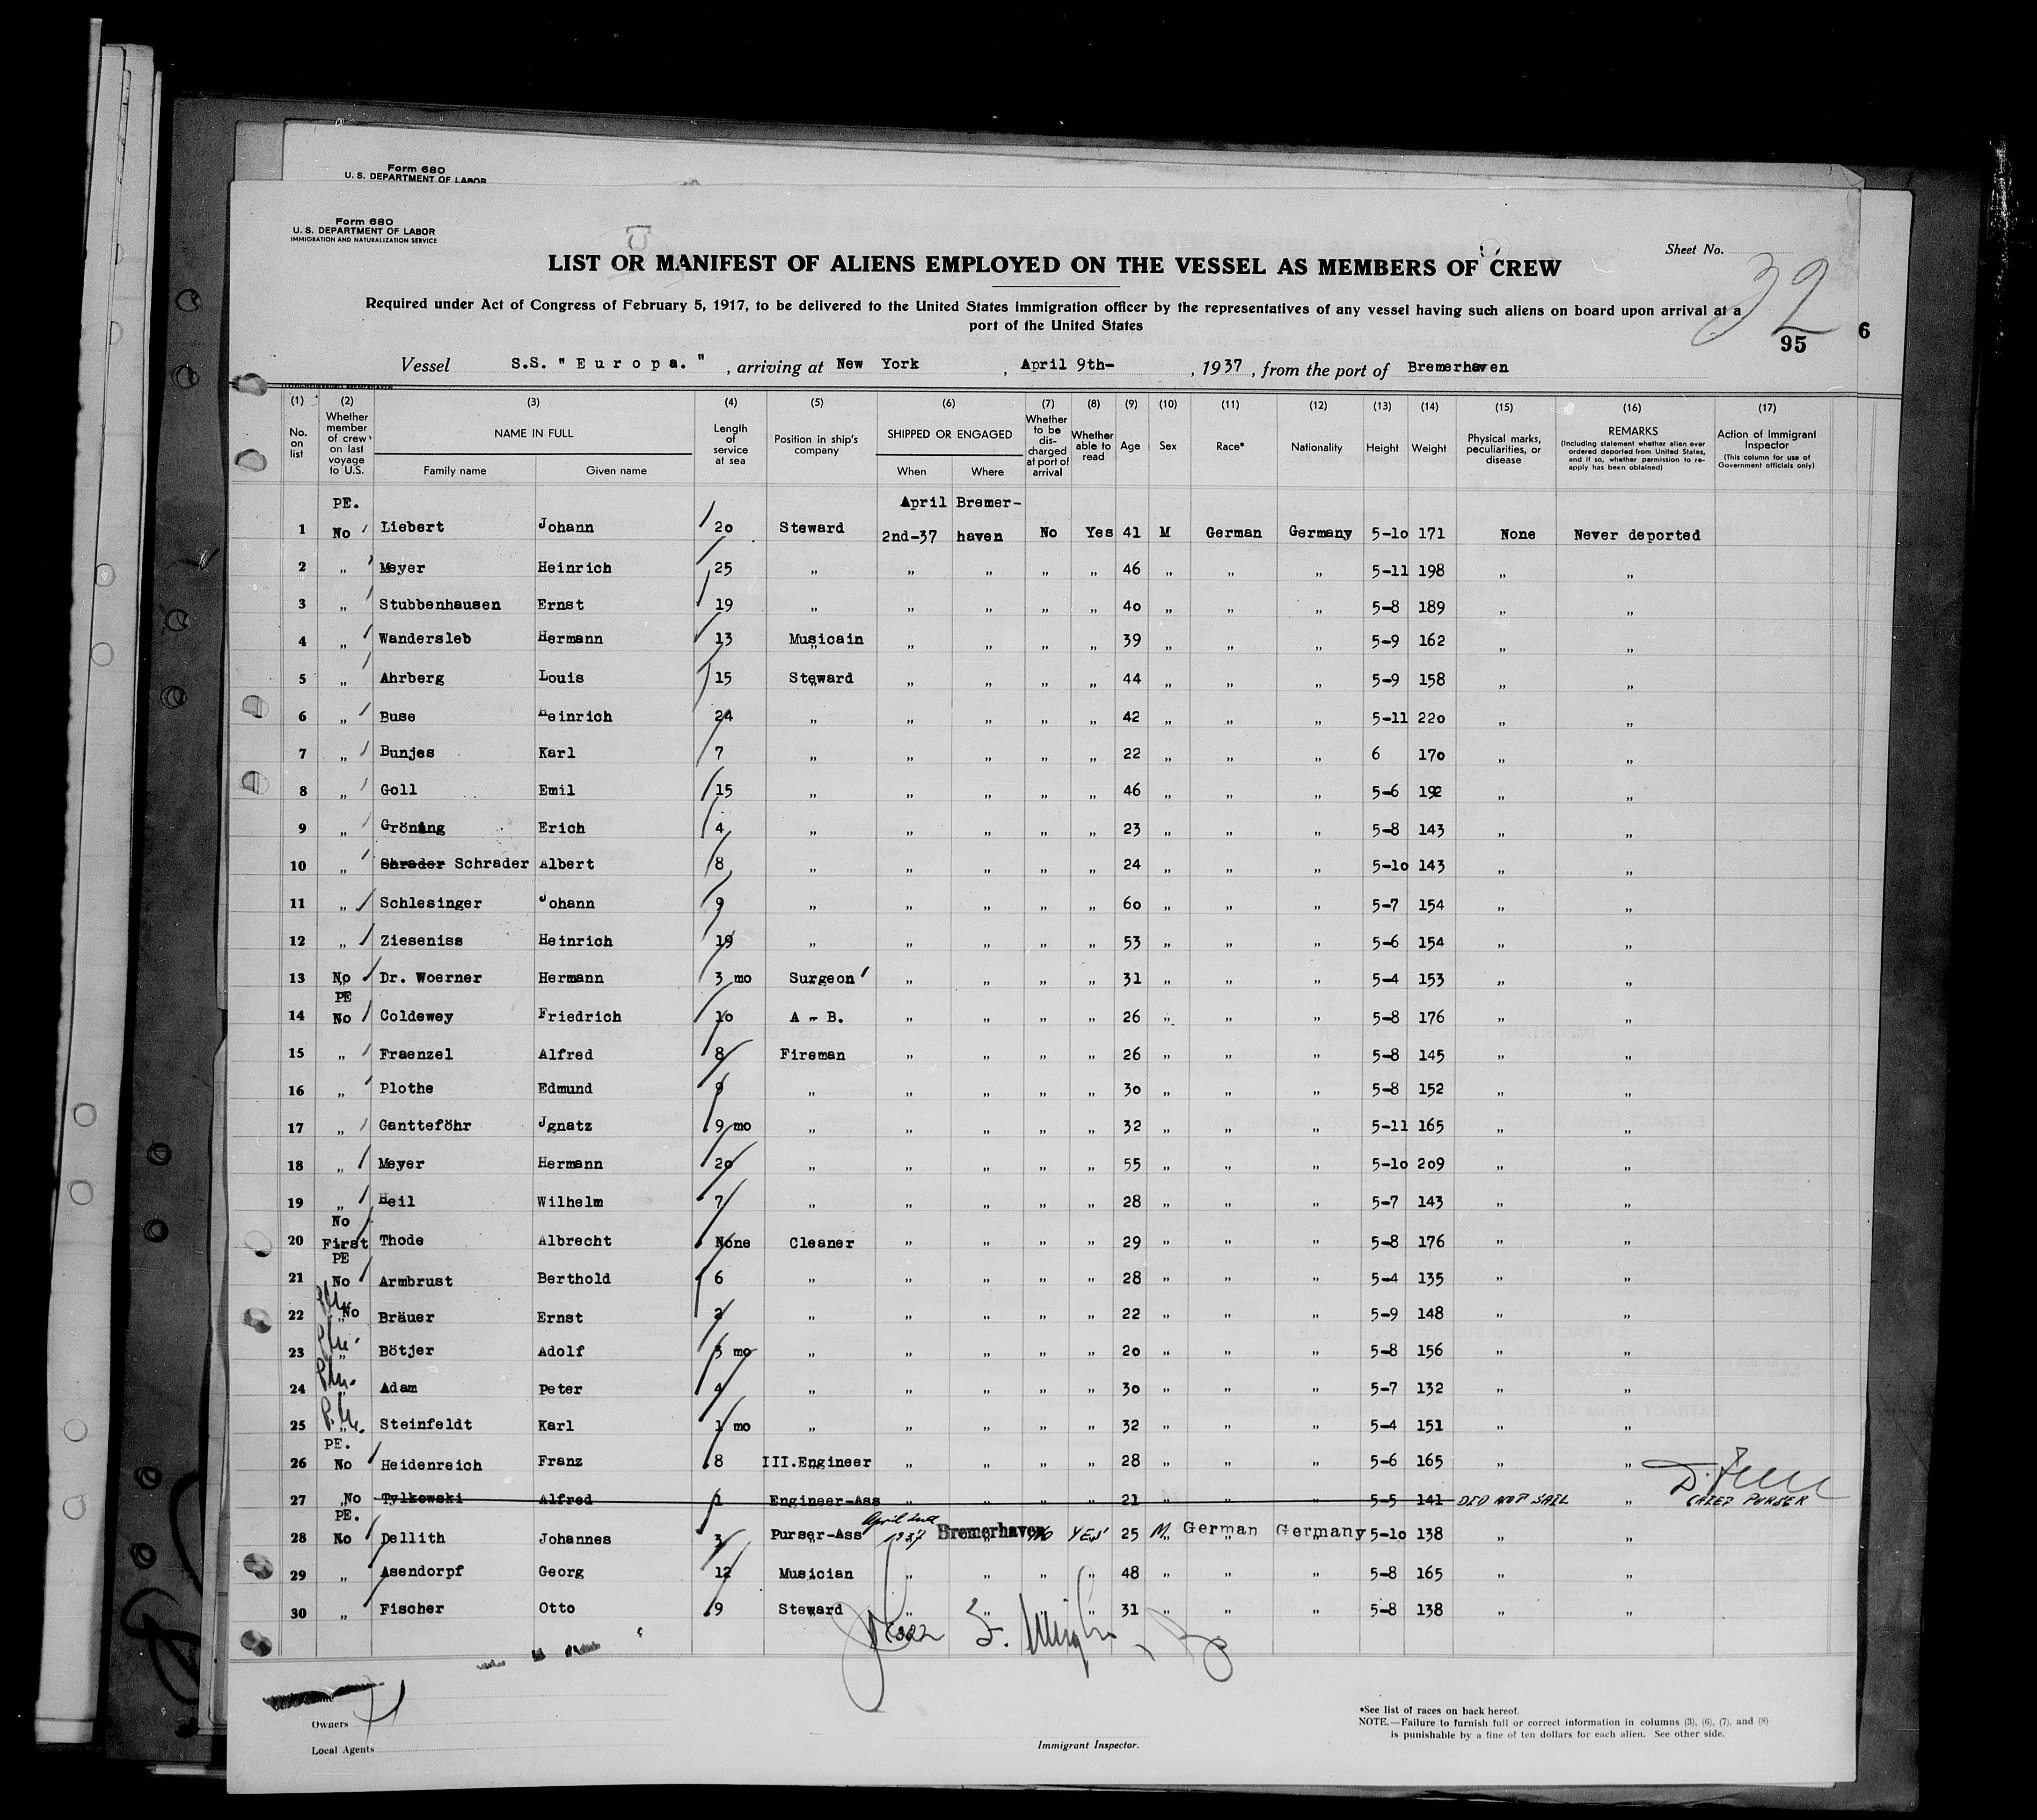 Form 680
U. S. DEPARTMENT OF LABOR
Form 680
U. S. DEPARTMENT OF LABOR
IMMIGRATION AND NATURALIZATION SERVICE
Sheet No.
32
LIST OR MANIFEST OF ALIENS EMPLOYED ON THE VESSEL AS MEMBERS OF CREW
Required under Act of Congress of February 5, 1917, to be delivered to the United States immigration officer by the representatives of any vessel having such aliens on board upon arrival at a
port of the United States
95
6
Vessel S.S. " E u r o p a. " , arriving at New York , April 9th- , 1937 , from the port of Bremerhaven
(1) (2) (3) (4) (5) (6) (7) (8) (9) (10) (11) (12) (13) (14) (15) (16) (17)
No. on list
Whether member of crew on last voyage to U.S.
NAME IN FULL
Family name Given name
Length of service at sea
Position in ship's company
SHIPPED OR ENGAGED
When Where
Whether to be discharged at port of arrival
Whether able to read
Age
Sex
Race*
Nationality
Height
Weight
Physical marks, peculiarities, or disease
REMARKS
(Including statement whether alien ever ordered deported from United States, and if so, whether permission to re-apply has been obtained)
Action of Immigrant Inspector
(This column for use of Government officials only)
PE. April Bremer-
1 No Liebert Johann 20 Steward 2nd-37 haven No Yes 41 M German Germany 5-10 171 None Never deported
2 " Meyer Heinrich 25 " " " " " 46 " " " 5-11 198 " "
3 " Stubbenhausen Ernst 19 " " " " " 40 " " " 5-8 189 " "
4 " Wandersleb Hermann 13 Musicain " " " " 39 " " " 5-9 162 " "
5 " Ahrberg Louis 15 Steward " " " " 44 " " " 5-9 158 " "
6 " Buse Heinrich 24 " " " " " 42 " " " 5-11 220 " "
7 " Bunjes Karl 7 " " " " " 22 " " " 6 170 " "
8 " Goll Emil 15 " " " " " 46 " " " 5-6 192 " "
9 " Gröning Erich 4 " " " " " 23 " " " 5-8 143 " "
10 " Shrader Schrader Albert 8 " " " " " 24 " " " 5-10 143 " "
11 " Schlesinger Johann 9 " " " " " 60 " " " 5-7 154 " "
12 " Zieseniss Heinrich 19 " " " " " 53 " " " 5-6 154 " "
13 No Dr. Woerner Hermann 3 mo Surgeon " " " " 31 " " " 5-4 153 " "
PE
14 No Coldewey Friedrich 10 A - B. " " " " 26 " " " 5-8 176 " "
15 " Fraenzel Alfred 8 Fireman " " " " 26 " " " 5-8 145 " "
16 " Plothe Edmund 9 " " " " " 30 " " " 5-8 152 " "
17 " Gantteföhr Jgnatz 9 mo " " " " " 32 " " " 5-11 165 " "
18 " Meyer Hermann 20 " " " " " 55 " " " 5-10 209 " "
19 " Heil Wilhelm 7 " " " " " 28 " " " 5-7 143 " "
No
20 First Thode Albrecht None Cleaner " " " " 29 " " " 5-8 176 " "
PE
21 No Armbrust Berthold 6 " " " " " 28 " " " 5-4 135 " "
22 No Bräuer Ernst 2 " " " " " 22 " " " 5-9 148 " "
23 " Bötjer Adolf 3 mo " " " " " 20 " " " 5-8 156 " "
24 " Adam Peter 4 " " " " " 30 " " " 5-7 132 " "
25 " Steinfeldt Karl 1 mo " " " " " 32 " " " 5-4 151 " "
PE.
26 No Heidenreich Franz 8 III.Engineer " " " " 28 " " " 5-6 165 " "
27 No Tylkowski Alfred 1 Engineer-Ass " " " " 21 " " " 5-5 141 DID NOT SAIL " CHIEF PURSER
PE. April 2nd
28 No Dellith Johannes 3 Purser-Ass 1937 Bremerhaven No YES 25 M German Germany 5-10 138 " "
29 " Asendorpf Georg 12 Musician " " " " 48 " " " 5-8 165 " "
30 " Fischer Otto 9 Steward " " " " 31 " " " 5-8 138 " "
Owners
Local Agents
Immigrant Inspector.
*See list of races on back hereof.
NOTE.—Failure to furnish full or correct information in columns (3), (6), (7), and (8)
is punishable by a fine of ten dollars for each alien. See other side.